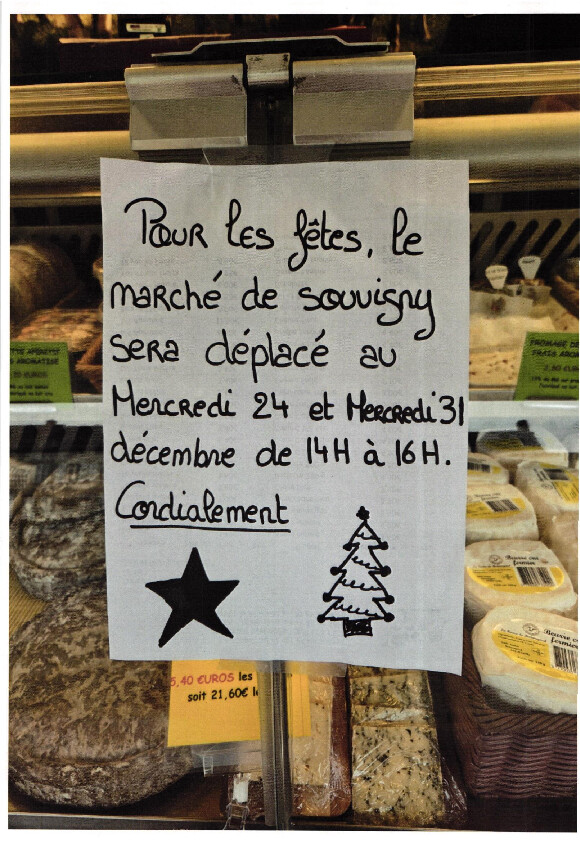 Pour les fêtes, le
marché de souvigny
sera déplacé au
Mercredi 24 et Mercredi 31
décembre de 14H à 16H.
Cordialement
FROMAGE DE
FRAIS AROMA
EUROS
5,40 €UROS les
soit 21,60€ l
Beurre cru
fermier
Beurre cru
fermier